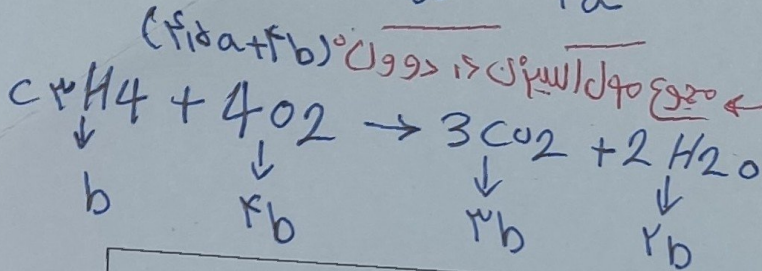 ← مجموع مول اکسیژن در دو ول: (۴,۵a+۴b)
C۳H4 + 4O2 → 3CO2 + 2H2O
↓ ↓ ↓ ↓
b ۴b ۳b ۲b